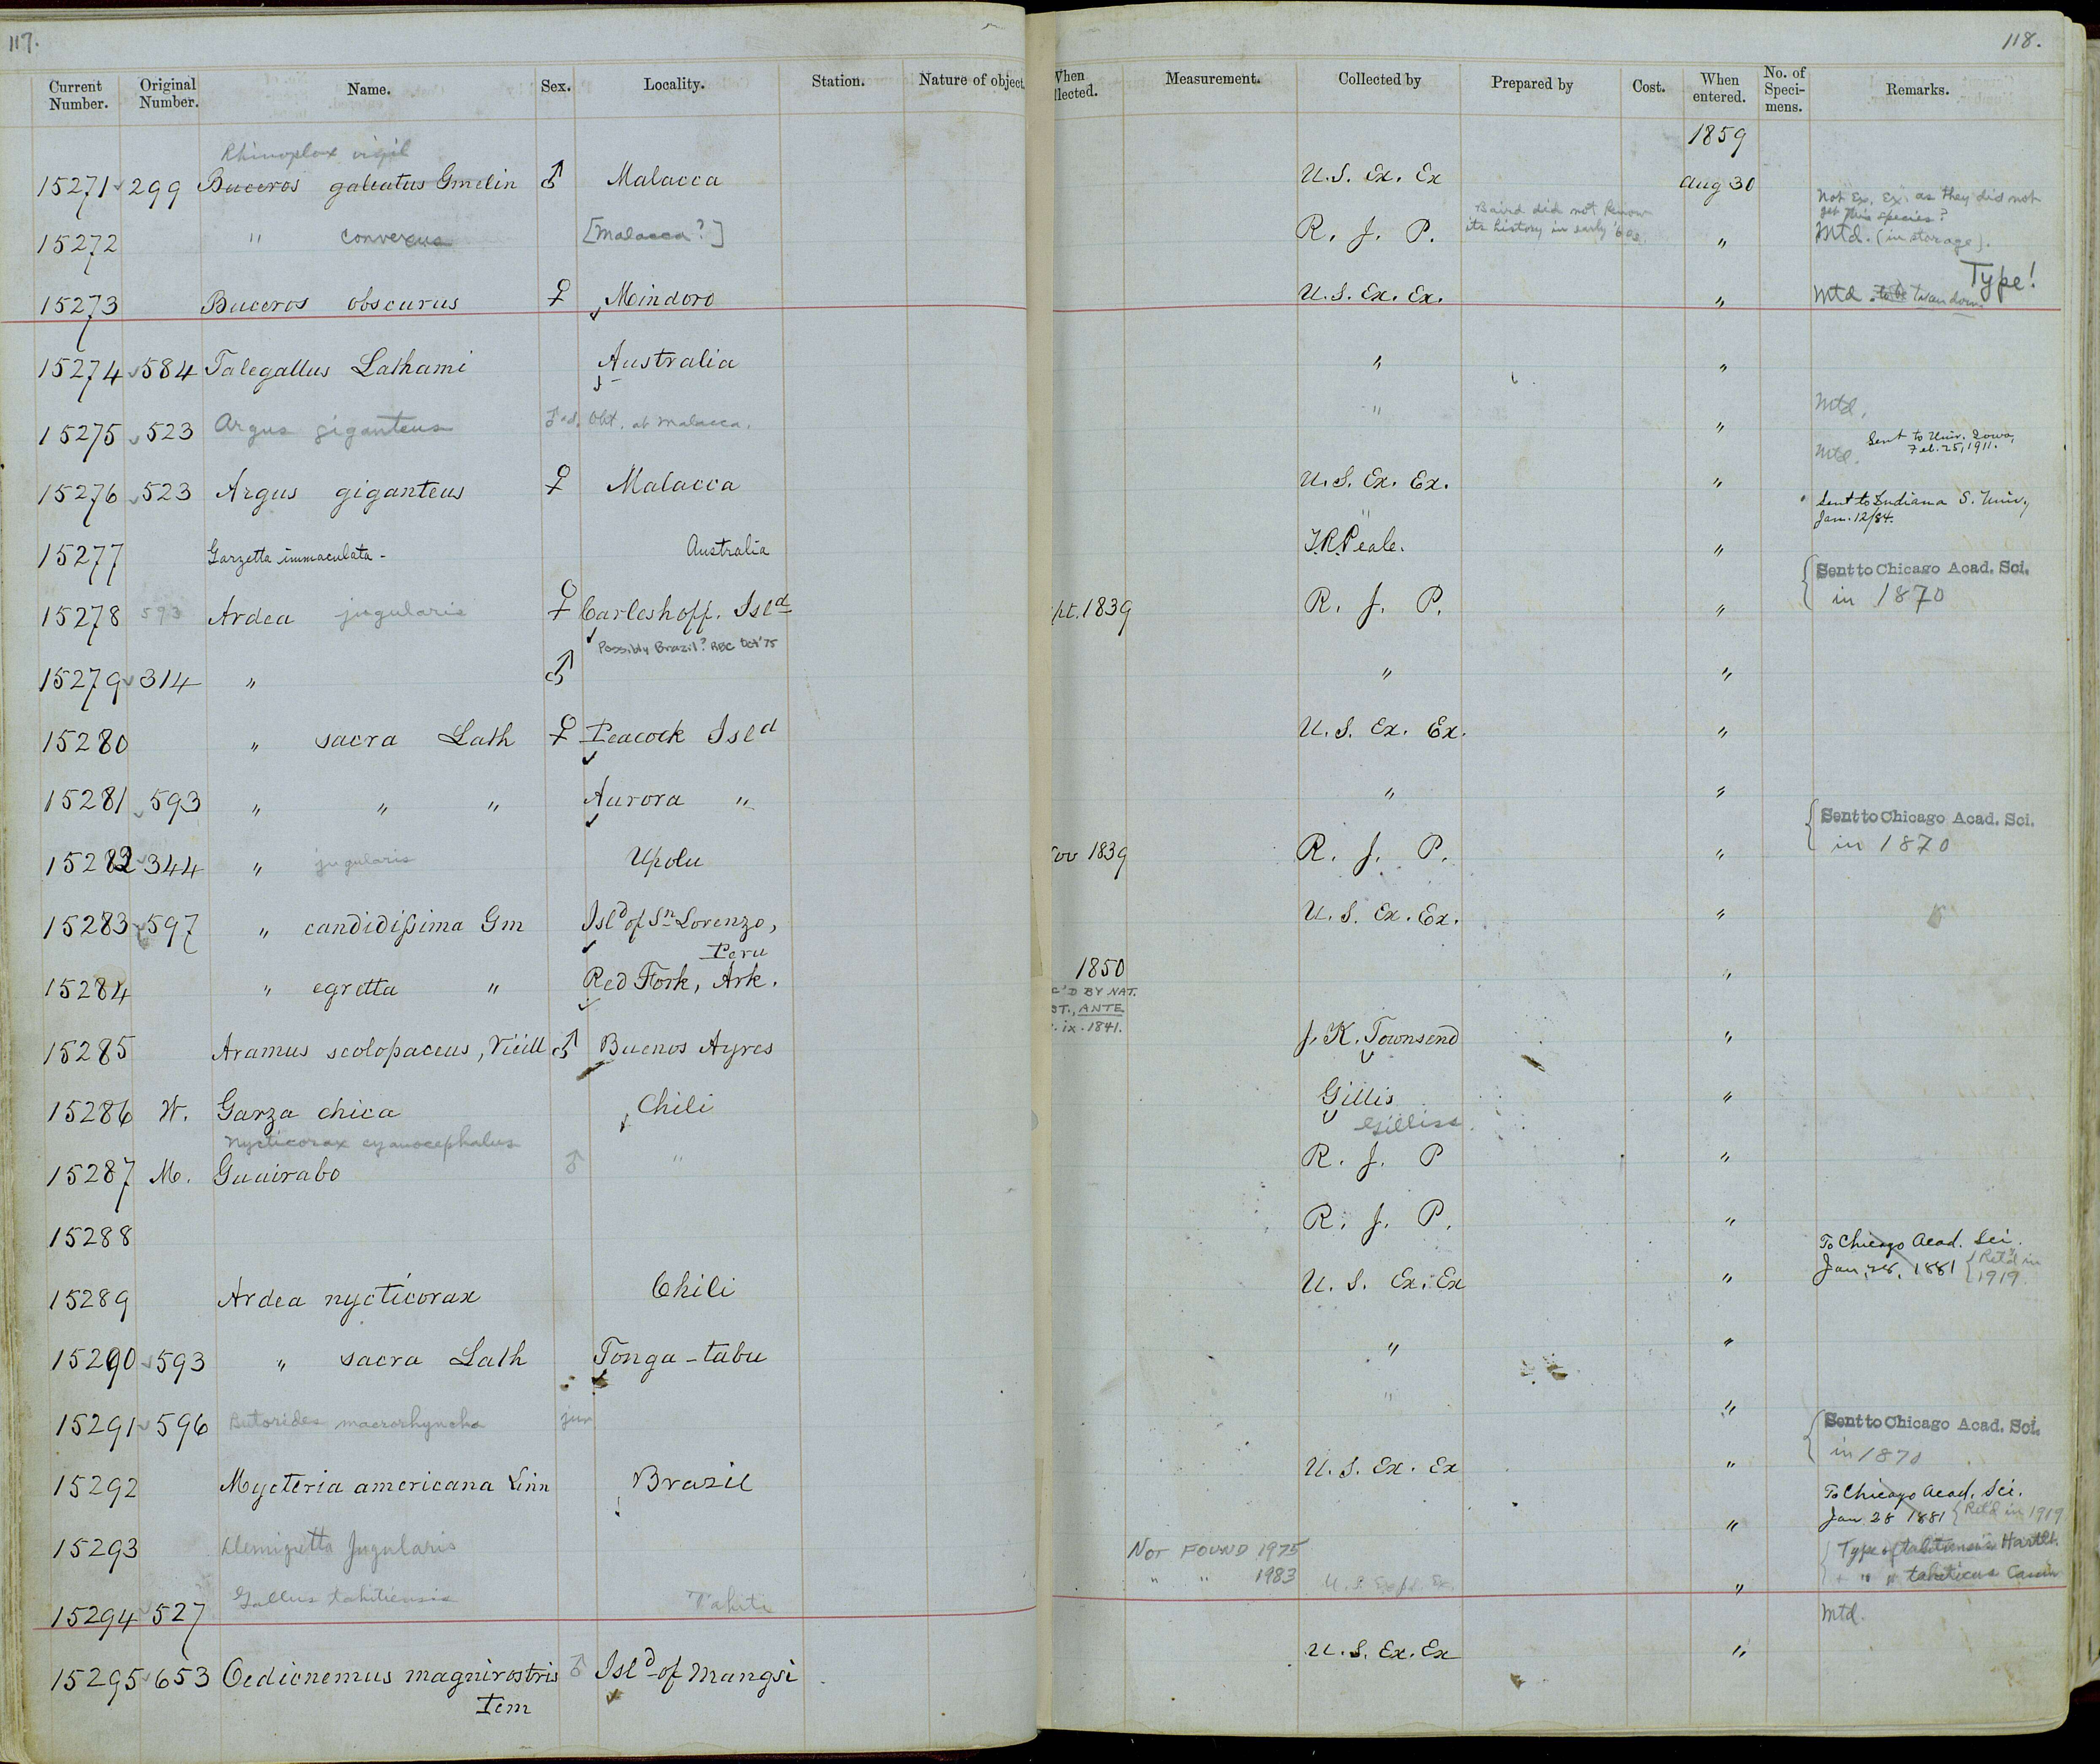 117.
118.
Current Number. Original Number. Name. Sex. Locality. Station. Nature of object. When llected. Measurement. Collected by Prepared by Cost. When entered. No. of Speci- mens. Remarks.
1859
Rhinoplax vigil
15271 299 Buceros galeatus Gmelin ♂ Malacca U.S. Ex. Ex Aug 30
Not Ex. Ex. as they did not
get this species?
15272 " convexus [Malacca?] R. J. P. Baird did not know
its history in early '60s. " Mtd. (in storage).
Type!
15273 Buceros obscurus ♀ Mindoro U.S. Ex. Ex. " Mtd. to be
15274 584 Talegallus Lathami Australia " "
15275 523 Argus giganteus Obt. at Malacca. " " Mtd.
Sent to Univ. Iowa,
Feb. 25, 1911.
Mtd.
15276 523 Argus giganteus ♀ Malacca U.S. Ex. Ex. "
Sent to Indiana S. Univ.,
Jan. 12/84.
15277 Garzetta immaculata - Australia " T.R.Peale. "
Sent to Chicago Acad. Sci.
in 1870
15278 593 Ardea jugularis ♀ Carleshoff. Isld pt. 1839 R. J. P. "
Possibly Brazil? RBC Oct '75
15279 314 " ♂ " "
15280 " sacra Lath ♀ Peacock Isld U.S. Ex. Ex. "
15281 593 " " " Aurora " " "
Sent to Chicago Acad. Sci.
in 1870
15282 344 " jugularis Upolu ov 1839 R. J. P. "
15283 597 " candidissima Gm Isld of Sn Lorenzo, U.S. Ex. Ex. "
Peru
15284 " egretta " Red Fork, Ark. 1850 "
C'D BY NAT.
ST., ANTE
. ix. 1841.
15285 Aramus scolopaceus, Vieill ♂ Buenos Ayres J. K. Townsend "
15286 W. Garza chica Chili Gillis "
Gilliss.
Nycticorax cyanocephalus
15287 M. Guairabo ♂ " R. J. P "
15288 R. J. P. "
To Chicago Acad. Sci.
Jan. 28, 1881 {Ret'd in
1919.
15289 Ardea nycticorax Chili U. S. Ex. Ex "
15290 593 " sacra Lath Tonga-tabu " "
15291 596 Butorides macrorhyncha juv " "
Sent to Chicago Acad. Sci.
in 1870
15292 Mycteria americana Linn Brazil U.S. Ex. Ex "
To Chicago Acad. Sci.
Jan 28 1881 {Ret'd in 1919
15293 Demigretta Jugularis "
NOT FOUND 1975
" " 1983
Type of tahitensis Hartl.
" " " tahiticus Cassin
15294 527 Gallus tahitiensis Tahiti U.S. Expl. Ex. "
Mtd.
15295 653 Oedicnemus magnirostris ♂ Isld of Mangsi U.S. Ex. Ex "
Tem